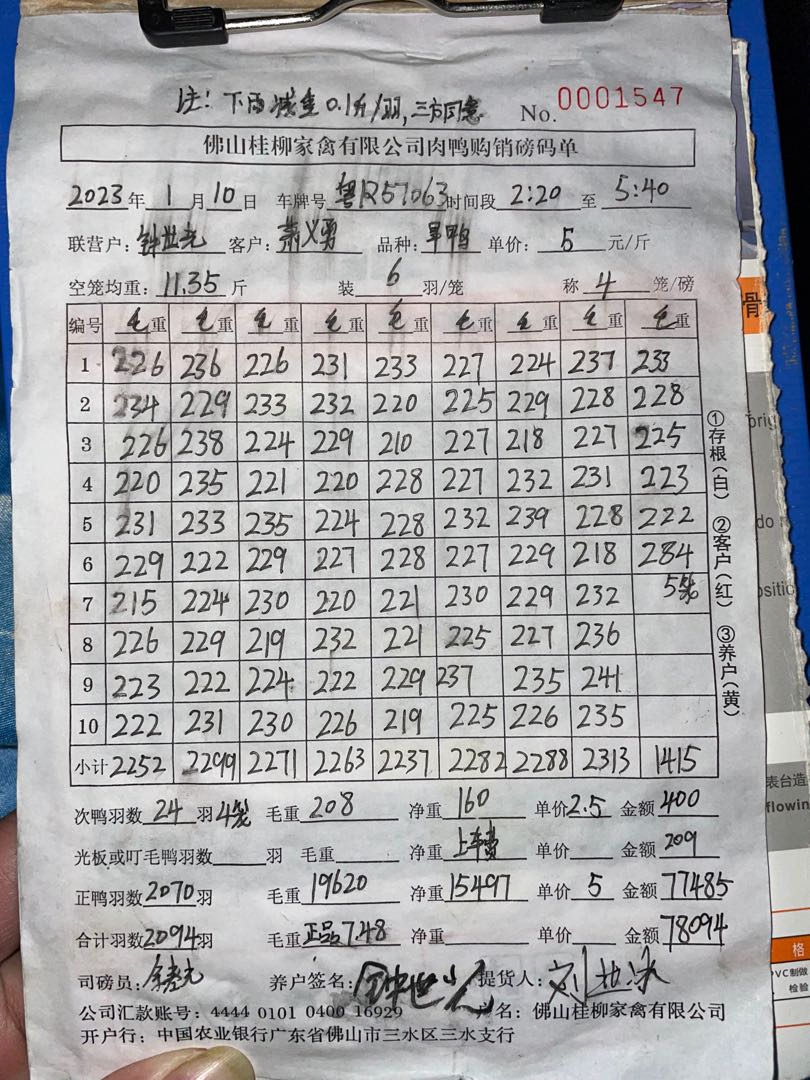 注:下雨减重0.1斤/羽,三方同意
No.0001547
佛山桂柳家禽有限公司肉鸭购销磅码单
2023年1月10日 车牌号粤R57063时间段2:20至5:40
联营户:钟世光 客户:萧义勇 品种:旱鸭 单价:5元/斤
空笼均重:11.35斤 装6羽/笼 称4笼/磅
编号 毛重 毛重 毛重 毛重 毛重 毛重 毛重 毛重 毛重
1 226 236 226 231 233 227 224 237 233
2 234 229 233 232 220 225 229 228 228
3 226 238 224 229 210 227 218 227 225
4 220 235 221 220 228 227 232 231 223
5 231 233 235 224 228 232 239 228 222
6 229 222 229 227 228 227 229 218 284
7 215 224 230 220 221 230 229 232 5笼
8 226 229 219 232 221 225 227 236
9 223 222 224 222 229 237 235 241
10 222 231 230 226 219 225 226 235
小计 2252 2299 2271 2263 2237 2282 2288 2313 1415
次鸭羽数24羽4笼 毛重208 净重160 单价2.5 金额400
光板或叮毛鸭羽数 羽 毛重 净重上车费 单价 金额209
正鸭羽数2070羽 毛重19620 净重15497 单价5 金额77485
合计羽数2094羽 毛重正品7.48 净重 单价 金额78094
司磅员: 养户签名:钟世光 提货人:
公司汇款账号:4444 0101 0400 16929 户名:佛山桂柳家禽有限公司
开户行:中国农业银行广东省佛山市三水区三水支行
①存根(白) ②客户(红) ③养户(黄)
骨
表台造
flowin
格
PVC制做
检验